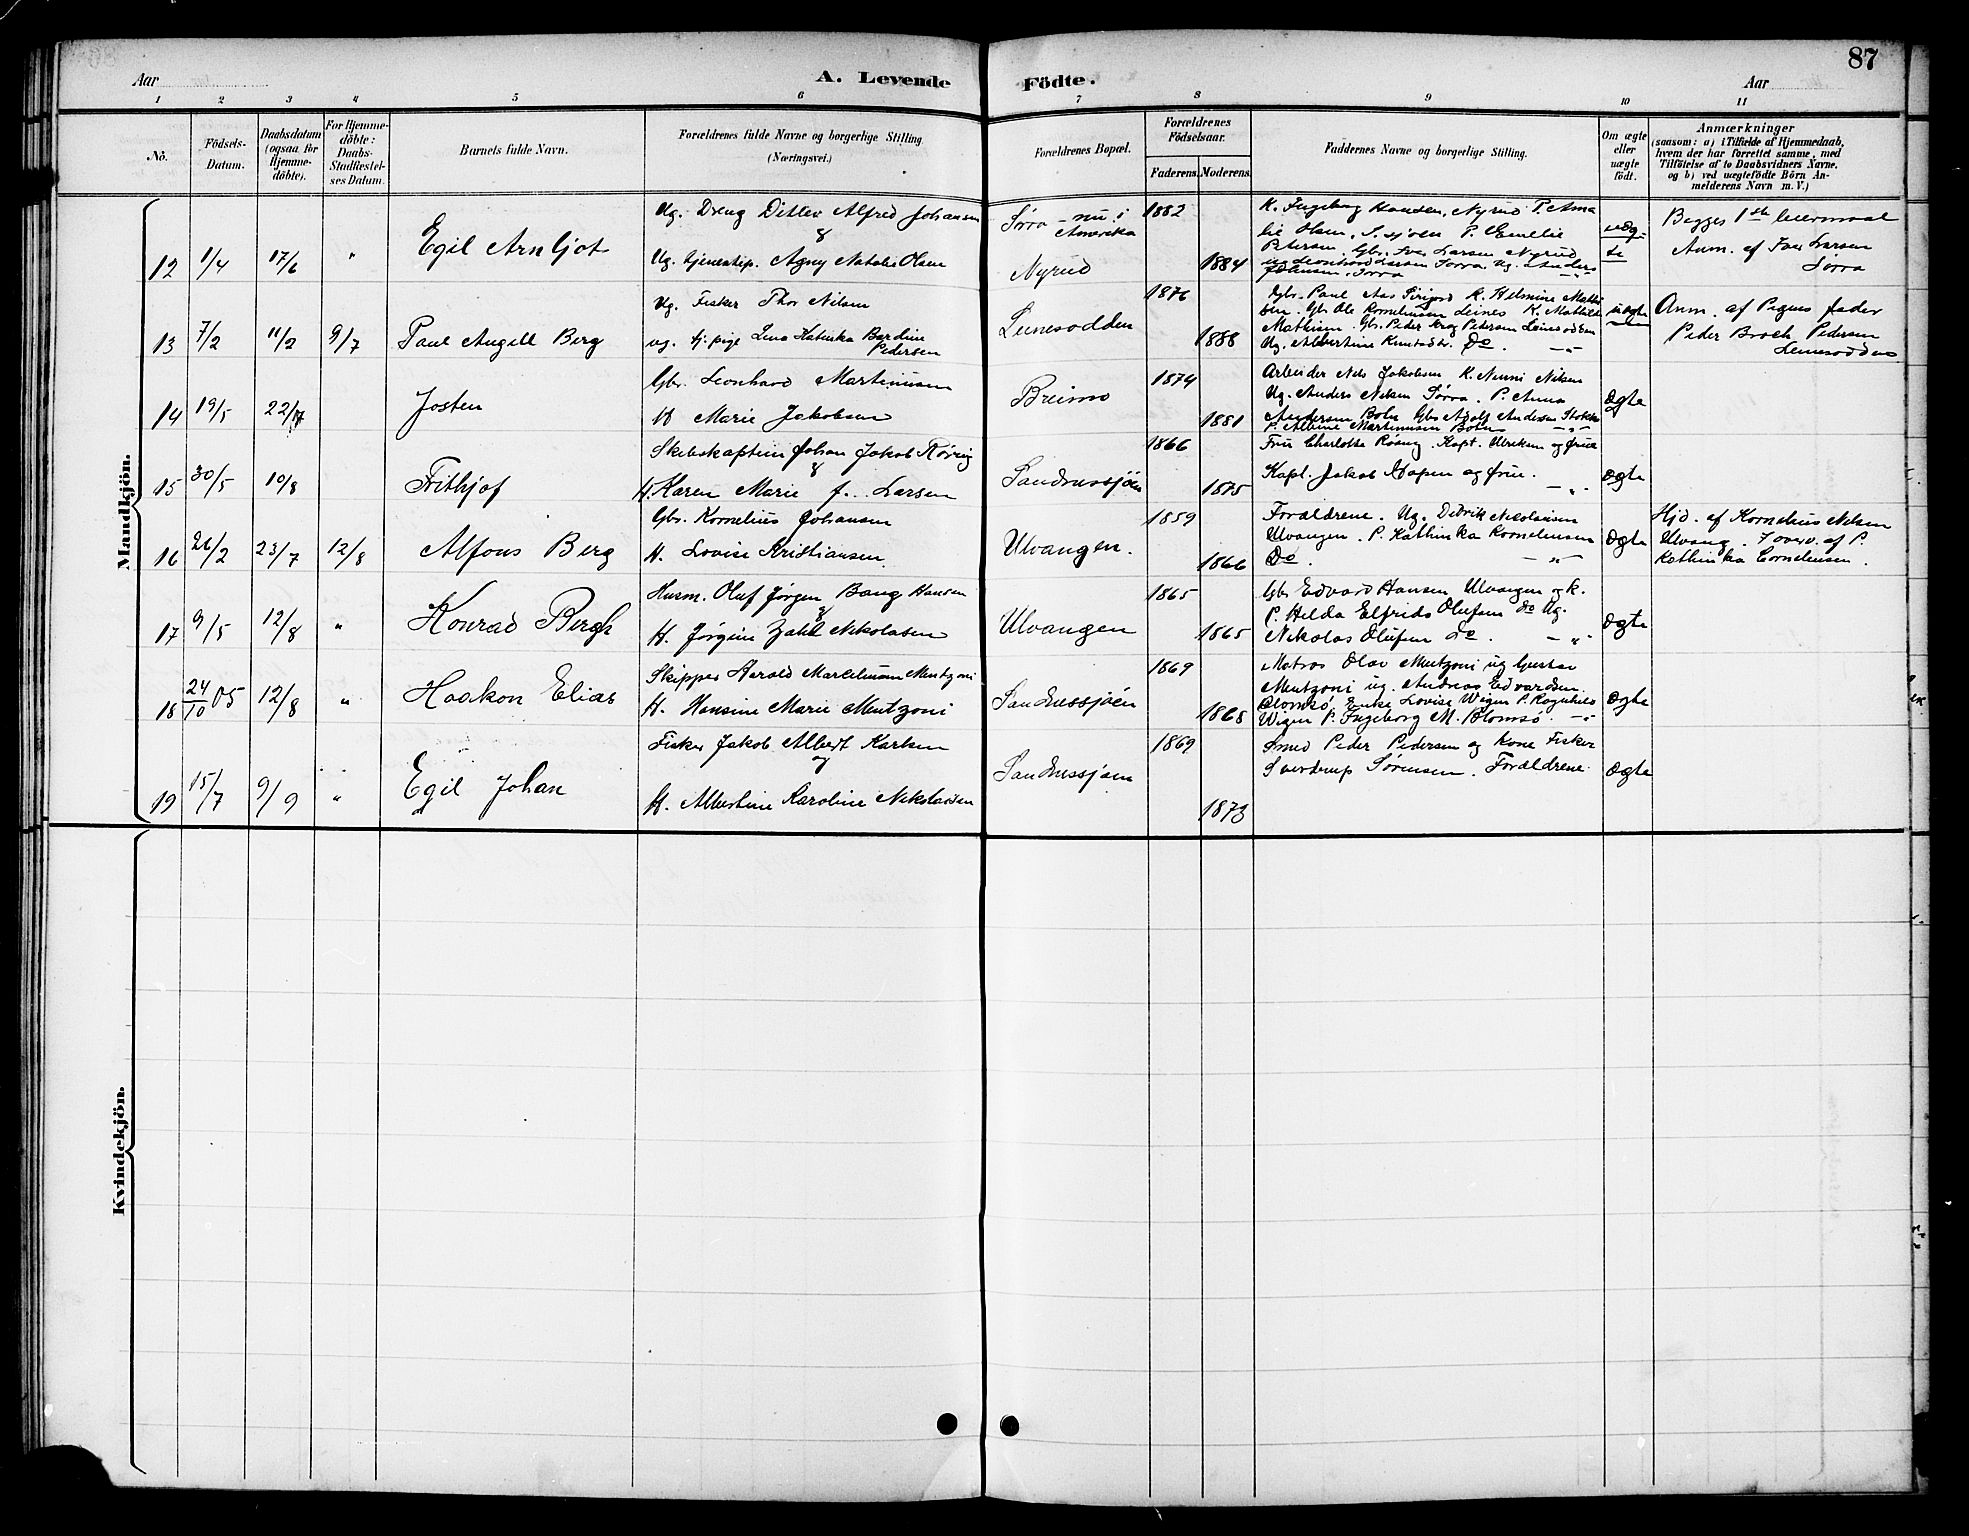 87
Aar
A. Levende
Födte.
Aar
1 2 3 4 5 6 7 8 9 10 11
No.
Födsels-
Datum.
Daabsdatum
(ogsaa for
Hjemme-
döbte).
For Hjemme-
döbte:
Daabs-
Stadfæstel-
ses Datum.
Barnets fulde Navn.
Forældrenes fulde Navne og borgerlige Stilling
(Næringsvei.)
Forældrenes Bopæl.
Forældrenes
Födselsaar.
Faderens. Moderens.
Faddernes Navne og borgerlige Stilling.
Om ægte
eller
uægte
födt.
Anmærkninger
(saasom: a) i Tilfælde af Hjemmedaab,
hvem der har forrettet samme, med
Tilföielse af to Daabsvidners Navne,
og b) ved uægtefödte Börn An-
melderens Navn m. V.)
Mandkjön.
12 1/4 17/6 "
Egil Arnljot
Ug. Dreng Ditlev Alfred Johansen
&
Ug. tjenestep. Agny Natalie Olsen
Sørra nu i
Amerika
Nyrud
1882
1884
K. Ingeborg Hansen, Nyrud P. Ama
lie Olsen, S.sjøen P. Emelie
Petersen, Gbr. Iver Larsen Nyrud
ug Leonhard Larsen Sørra. Ug. Anders
Johansen, Sørra
uæg-
te
Begges 1ste leiermaal
Anm. af Iver Larsen
Sørra
13 7/2 11/2 9/7
Paul Angell Berg
Ug. Fisker Thor Nilsen
ug. tj. pige Lena Katinka Bardine
Pedersen
Leinesodden
1876
1888
Gbr. Paul Aas K. Helmine Mathi
sen. Gbr Ole Korneliussen Leines K. Mathilde
Mathisen. Gbr. Peder Krog Pedersen Leinesodden
Ug. Albertine Knutsdtr. Do. —"—
uægte
Anm. af Pigens fader
Peder Broch Pedersen
Leinesodden
14 19/5 22/7
Josten
Gbr. Leonhard Martinussen
H Marie Jakobsen
Breimo
1874
1881
Arbeider Nils Jakobsen K. Nilsen
Ug. Anders Nilsen Sørra. P. Anna
Andersen Botn Gbr Adolf Andersen
P. Albine Martinussen Botn —"—
Ægte
15 30/5 19/8
Frithjof
Skibskaptein Johan Jakob Røring
&
H. Karen Marie f. Larsen
Sandnessjøen
1866
1875
Frue Charlotte Røsing. Kapt. Ulriksen og frue
Kapt. Jakob Hapen og frue. —"—
Ægte
16 26/2 23/7 12/8
Alfons Berg
Gbr. Kornelius Johansen
H. Lovise Kristiansen
Ulvangen.
1859
1866
Forældrene. Ug. Didrik Nikolaisen
Ulvangen. P. Kathinka Korneliussen
Do. —"—
Ægte
Hjd. af Kornelius Nilsen
Ulvang. I overv. af P.
Kathinka Corneliussen.
17 9/5 12/8 "
Konrad Bergh
Husm. Oluf Jørgen Bang Hansen
&
H. Jørgine Zahl Nikolaisen
Ulvangen
1865
1865
Gbr Edvard Hansen Ulvangen og K.
P. Helda Elfrida Olufsen do Ug.
Nikolas Olufsen do. —"—
Ægte
18 24/10 05 12/8 "
Haakon Elias
Skipper Harald Marcelinusen Mentzoni
H. Hansine Marie Mentzoni
Sandnessjøen
1869
1868
Matros Olav Mentzoni ug Gustav
Mentzoni ug. Andreas Edvardsen
Blomsö, Enke Lovise Wigen P. Ragnhild
Wigen P. Ingeborg M. Blomsö. —"—
Ægte
19 15/7 9/9 "
Egil Johan
Fisker Jakob Albert Karlsen
og
H. Albertine Karoline Nikolaisen
Sandnessjøen
1869
1873
Smed Peder Pedersen og Kone Fisker
Sverdrup Sørensen. Forældrene.
Ægte
Kvindekjön.